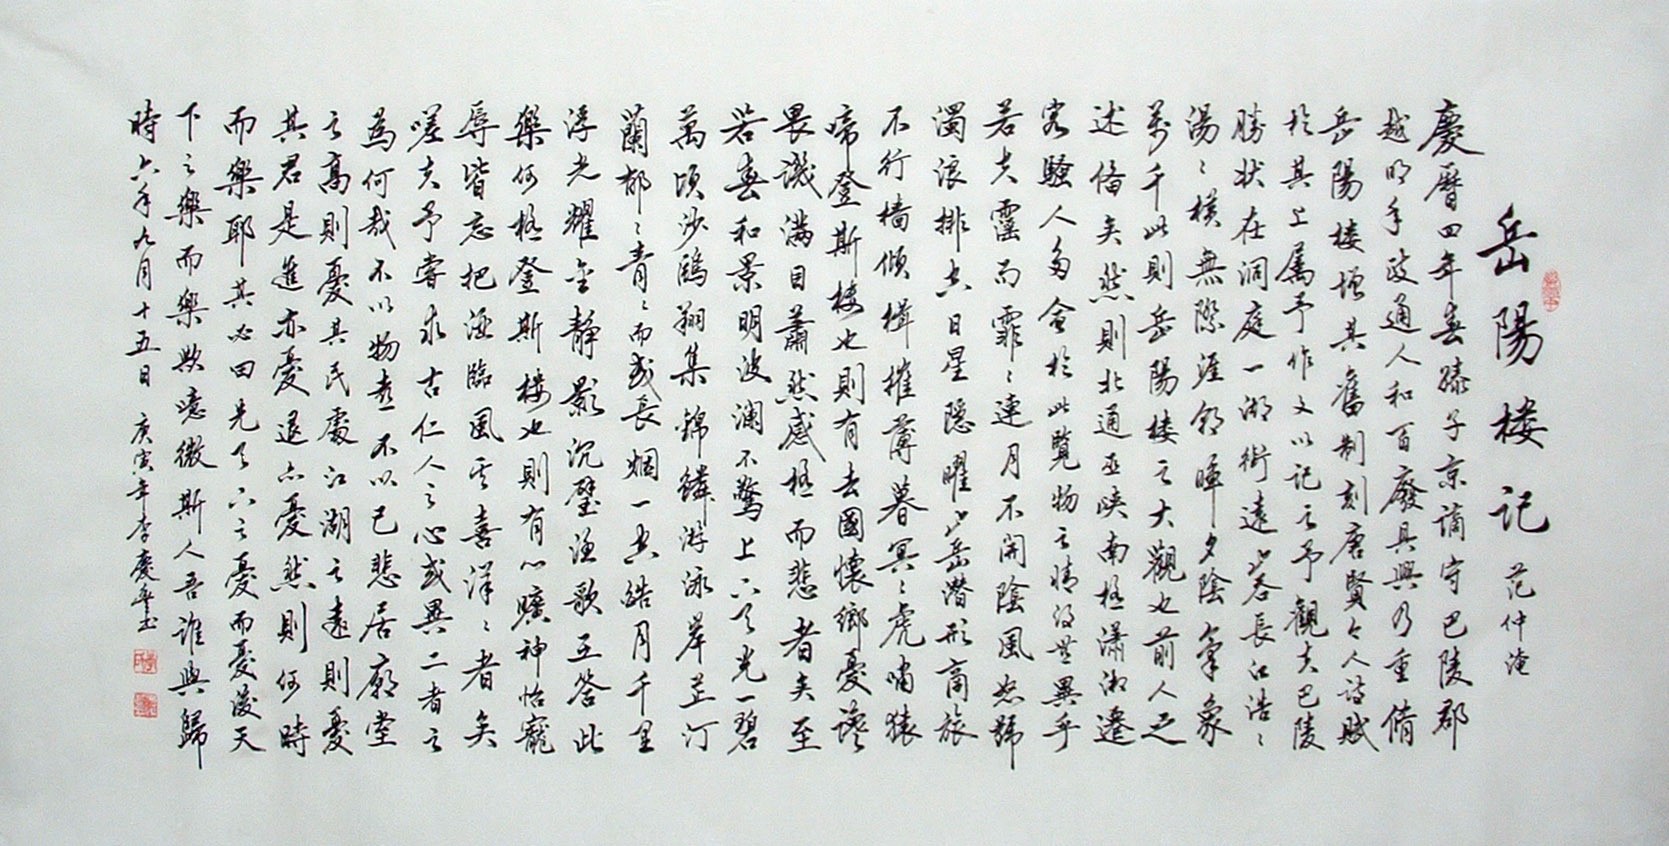 岳陽楼記 范仲淹
慶曆四年春滕子京謫守巴陵郡
越明年政通人和百廢具興乃重脩
岳陽楼增其舊制刻唐賢今人詩賦
於其上属予作文以記之予觀夫巴陵
勝状在洞庭一湖銜遠山吞長江浩〻
湯〻橫無際涯朝暉夕陰氣象
万千此則岳陽楼之大觀也前人之
述俻矣然則北通巫峡南極瀟湘遷
客騷人多會於此覽物之情得無異乎
若夫霪雨霏〻連月不開陰風怒號
濁浪排空日星隐曜山岳潜形商旅
不行檣傾楫摧薄暮冥〻虎嘯猿
啼登斯楼也則有去國懷鄉憂讒
畏譏滿目蕭然感極而悲者矣至
若春和景明波澜不驚上下天光一碧
萬頃沙鷗翔集錦鱗游泳岸芷汀
蘭郁〻青〻而或長烟一空皓月千里
浮光耀金静影沉璧渔歌互答此
樂何極登斯楼也則有心曠神怡寵
辱皆忘把酒臨風其喜洋〻者矣
嗟夫予嘗求古仁人之心或異二者之
為何哉不以物喜不以己悲居廟堂
之高則憂其民處江湖之遠則憂
其君是進亦憂退亦憂然則何時
而樂耶其必曰先天下之憂而憂後天
下之樂而樂歟噫微斯人吾誰與歸
時六年九月十五日 庚寅年李慶